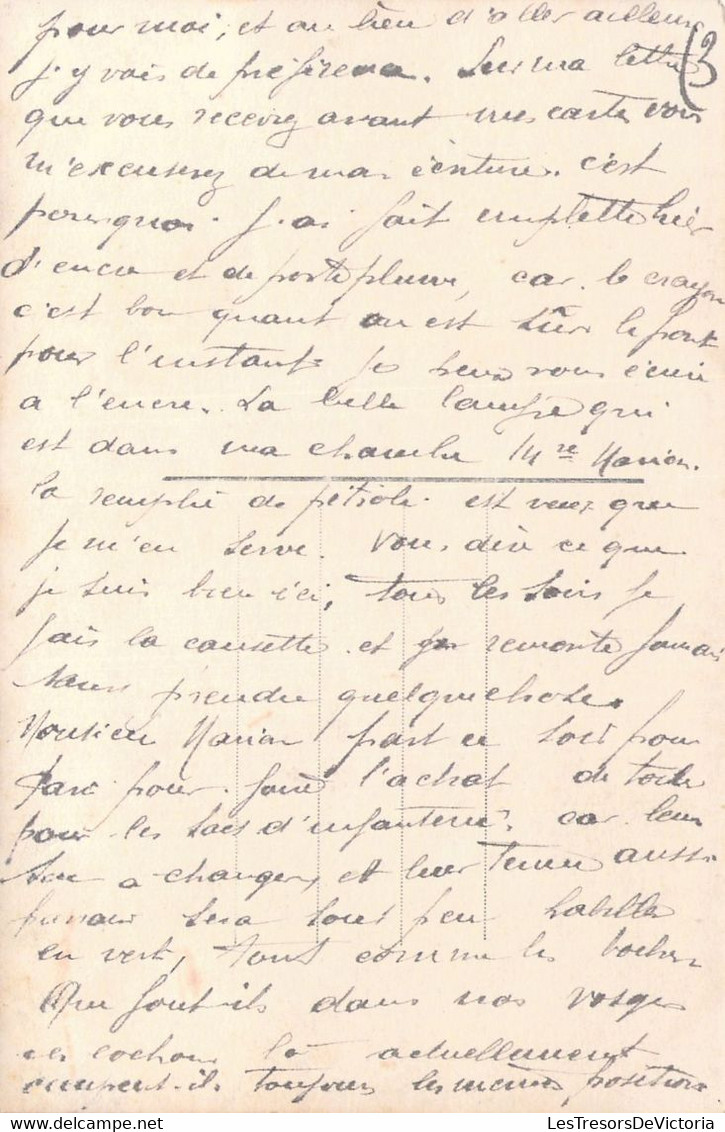 pour moi, et au lieu d'aller ailleurs
j'y vais de préférence. Sur ma lettre
3
que vous recevrez avant mes cartes vous
m'excuserez de mon écriture. c'est
pourquoi j'ai fait emplette hier
d'encre et de porte plume, car le crayon
c'est bon quant on est sur le front
pour l'instant je peux vous écrire
a l'encre. La belle lampe qui
est dans ma chambre Mre Marion
la remplie de pétrole est veux que
je m'en serve. Vous dire ce que
je suis bien ici, tous les soirs je
fais la causette et remonte jamais
sans prendre quelquechose.
Monsieur Marion part ce soir pour
Paris pour faire l'achat de toile
pour les sacs d'infanterie, car leur
sac a changer, et leur tenue aussi
sera sous peu habille
en vert, tout comme les boches
Que font-ils dans nos vosges
ces cochons là actuellement
occupent-ils toujours les mêmes positions
LesTresorsDeVictoria